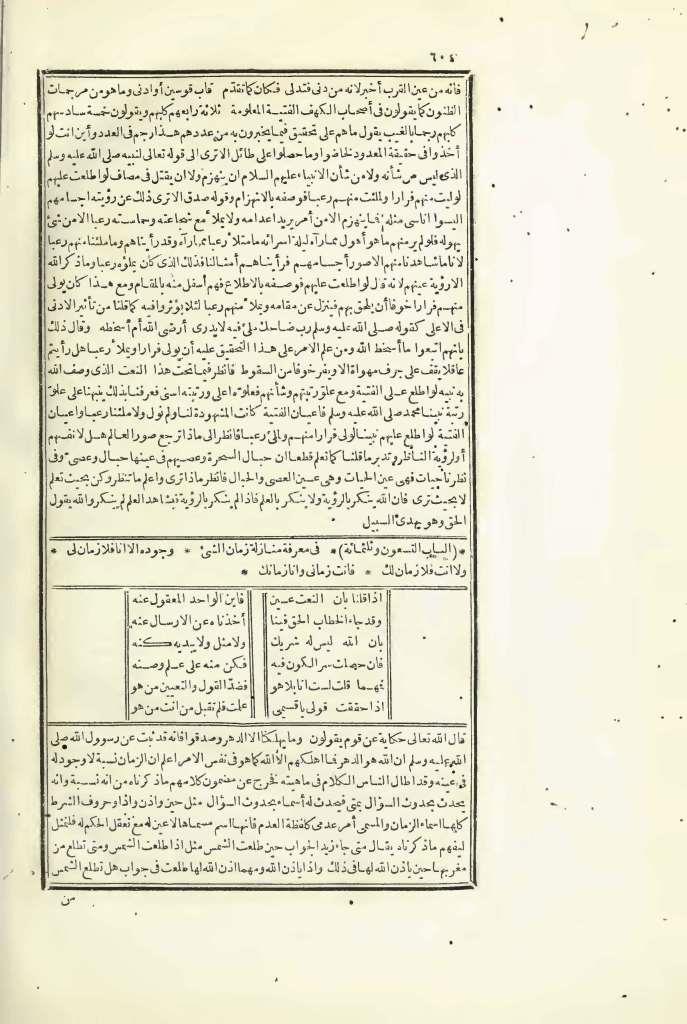 ٦٠٤
فانه من عين القرب أخبر لانه من دنى فتدلى فكان كما تقدّم قاب قوسين أو أدنى وما هو من مرجمات
الظنون كما يقولون فى أصحاب الكهف الفتية المعلومة ثلاثة رابعهم كلبهم ويقولون خمسة سادسهم
كلبهم رجما بالغيب يقول ما هم على تحقيق فيما يخبرون به من عددهم هذا رجم فى العدد وأين انت لو
أخذوا فى حقيقة المعدود لخاضوا وما حصلوا على طائل الاترى الى قوله تعالى لنبيه صلى الله عليه وسلم
الذى ليس من شأنه ولا من شأن الانبياء عليهم السلام ان ينهزم ولا ان يقتل فى مصاف لو اطلعت عليهم
لوليت منهم فرارا ولملئت منهم رعبا فوصفه بالانهزام وقوله صدق الاترى ذلك عن رؤيته اجسامهم
أليسوا اناسى مثله فما ينهزم الا من أمر يريد اعدامه ولا يملأ مع شجاعته وحماسته رعبا الا من شئ
يهوله فلو لم ير منهم ما هو أهول مما رآه ليلة اسرائه ما امتلأ رعبا مما رآه وقد رأيناهم وما ملئنا منهم رعبا
لانا ما شاهدنا منهم الا صور أجسامهم فرأيناهم أمثالنا فذلك الذى كان يملؤه رعبا وما ذكر الله
الارؤية عينهم لانه قال لو اطلعت عليهم فوصفه بالاطلاع فهم أسفل منه بالمقام ومع هذا كان يولى
منهم فرارا خوفا أن يلحق بهم فينزل عن مقامه ويملأ منهم رعبا لئلا يؤثروا فيه كما قلنا من تأثير الادنى
فى الاعلى كقوله صلى الله عليه وسلم رب ضاحك ملئ فيه لا يدرى أرضى الله أم أسخطه وقال ذلك
بانهم اتبعوا ما أسخط الله ومن علم الامر على هذا التحقيق عليه أن يولى فرارا ويملأ رعبا هل رأيتم
عاقلا يقف على جرف مهواة الا ويفر خوفا من السقوط فانظر فيما تحت هذا النعت الذى وصف الله
به نبيه لو اطلع على الفتية ومع علو رتبتهم وشأنهم فعلوّه اعلى ورتبته اسنى فعرفنا بذلك ينبهنا على علوّ
رتبة نبينا محمد صلى الله عليه وسلم فاعيان الفتية كانت المشهودة لنا ولم نول ولا ملئنا رعبا واعيان
الفتية لو اطلع عليهم نبينا لولى فرارا منهم ولملئ رعبا فانظر الى ماذا ترجع صور العالم هل لانفسهم
أو لرؤية الناظر وتدبر ما قلنا كما تعلم قطعا ان حبال السحرة وعصيهم فى عينها حبال وعصى وفى
نظرنا حيات فهى عين الحيات وهى عين العصى والحبال فانظر ماذا ترى واعلم ما تنظر وكن بحيث تعلم
لا بحيث ترى فان الله ينكر بالرؤية ولا ينكر بالعلم فاذا لم ينكر بالرؤية فبشاهد العلم لم ينكر والله يقول
الحق وهو يهدى السبيل
* (الباب التسعون وثلثمائة) * فى معرفة منازلة زمان الشئ * وجوده الا انا فلا زمان لى *
ولا انت فلا زمان لك * فانت زمانى وانا زمانك *
اذا قلنا بان النعت عين فاين الواحد المعقول عنه
وقد جاء الخطاب الحق فينا أخذناه عن الارسال عنه
بان الله ليس له شريك ولا مثل ولا يبديه كنه
فان حيهات سر الكون فيه فكن منه على علم وصنه
فمهما قلت لست انا بلا هو فضدّ القول والتعيين من هو
اذا حققت قولى يا قسيمى علمت فلم تقبل من انت من هو
قال الله تعالى حكاية عن قوم يقولون وما يهلكنا الا الدهر وصدقوا فانه قد ثبت عن رسول الله صلى
الله عليه وسلم ان الله هو الدهر فما اهلكهم الا الله كما هو فى نفس الامر اعلم ان الزمان نسبة لا وجود له
فى عينه وقد اطال الناس الكلام فى ماهيته فخرج عن مضمون كلامهم ما ذكرناه من انه نسبة وانه
يحدث بحدوث السؤال بمتى فيحدث له أسماء بحدوث السؤال مثل حين واذن واذا وحروف الشرط
كلها اسماء الزمان والمسمى أمر عدمى كلفظة العدم فانها اسم مسماها لا عين له مع تعقل الحكم له فلنمثل
ليفهم ما ذكرناه يقال متى جاء زيد الجواب حين طلعت الشمس مثل اذا طلعت الشمس ومتى تطلع من
مغربها حين يأذن الله لها فى ذلك واذا ياذن الله ومهما اذن الله لها طلعت فى جواب هل تطلع الشمس
من